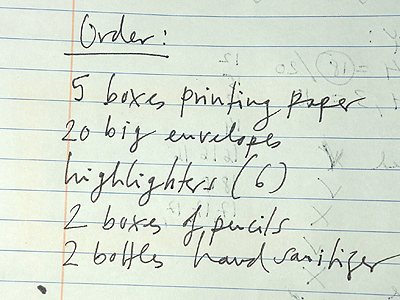 Order:
5 boxes printing paper
20 big envelopes
highlighters (6)
2 boxes of pencils
2 bottles hand sanitizer